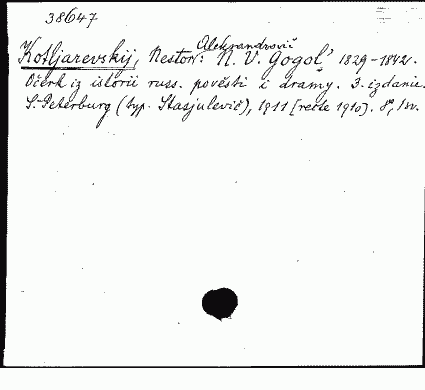 38647
Aleksandrovič
Kotljarevskij, Nestor: N. V. Gogol', 1829-1842.
Očerk iz istorii russ. pověsti i dramy. 3. izdanie.
S.-Peterburg (typ. Stasjulevič), 1911 [recte 1910]. 8°, 1 sv.